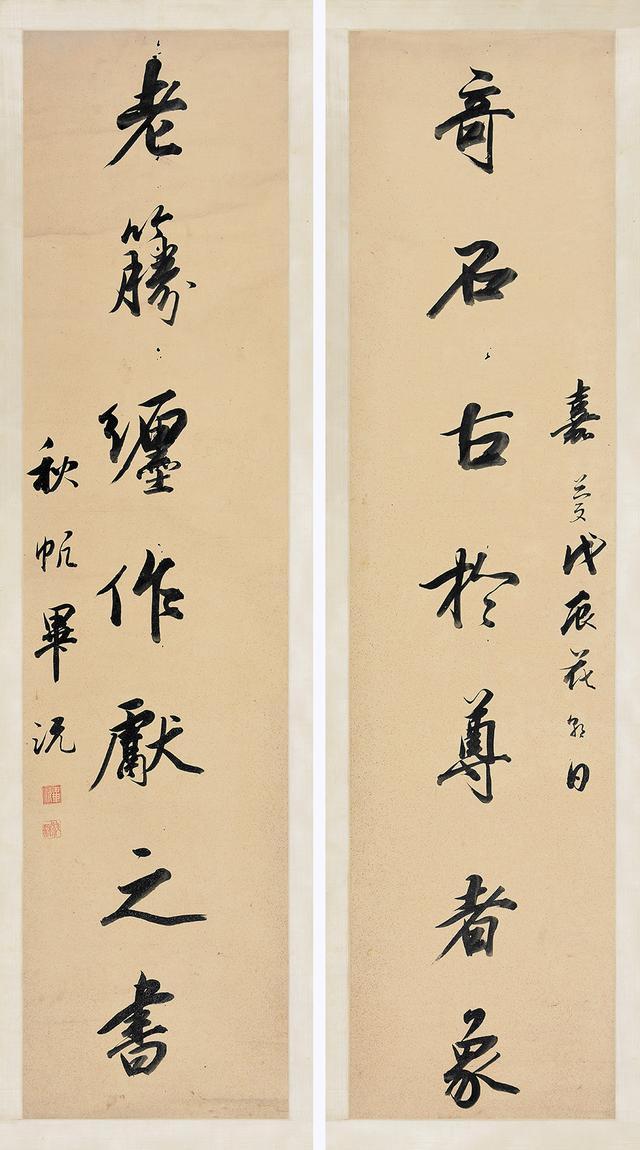 嘉慶戊辰花朝日
奇石古於尊者象
老籐纏作獻之書
秋帆畢沅